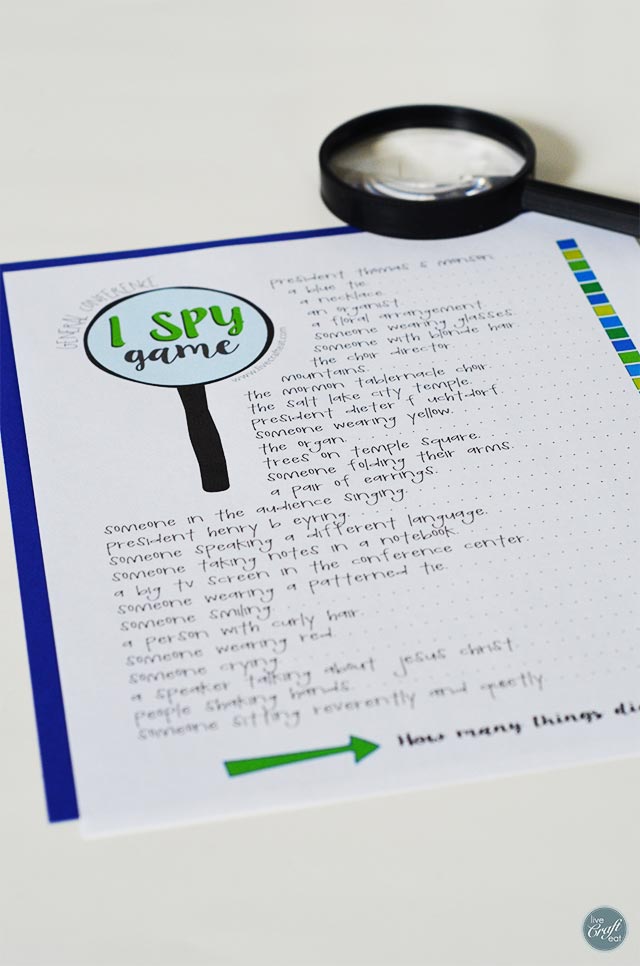 GENERAL CONFERENCE
I SPY
game
www.livecrafteat.com
president thomas s monson
a blue tie
a necklace
an organist
a floral arrangement
someone wearing glasses.
someone with blonde hair
the choir director
mountains.
the mormon tabernacle choir.
the salt lake city temple.
president dieter f uchtdorf.
someone wearing yellow.
the organ.
trees on temple square.
someone folding their arms.
a pair of earrings.
someone in the audience singing.
president henry b eyring.
someone speaking a different language.
someone taking notes in a notebook.
a big tv screen in the conference center.
someone wearing a patterned tie.
someone smiling.
a person with curly hair.
someone wearing red.
someone crying.
a speaker talking about jesus christ.
people shaking hands.
someone sitting reverently and quietly
How many things di
live
Craft
eat